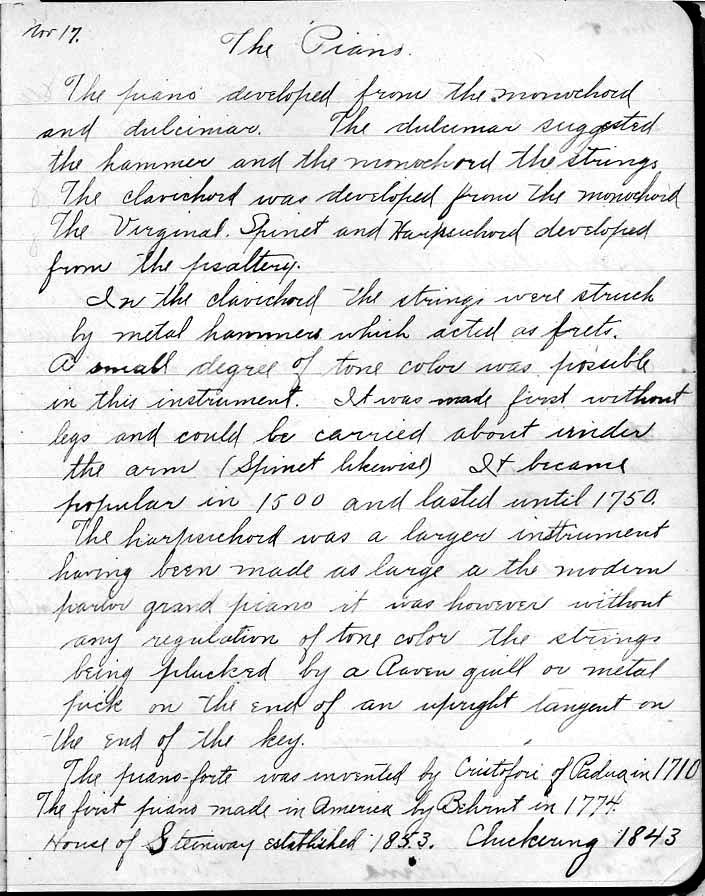 Nov 17.
The Piano.
The piano developed from the monochord
and dulcimar. The dulcimar suggested
the hammer and the monochord the strings
The clavichord was developed from the monochord
The Virginal. Spinet and Harpsichord developed
from the psaltery.
In the clavichord the strings were struck
by metal hammers which acted as frets.
A small degree of tone color was possible
in this instrument. It was made first without
legs and could be carried about under
the arm (Spinet likewise) It became
popular in 1500 and lasted until 1750.
The harpsichord was a larger instrument
having been made as large a the modern
parlor grand piano it was however without
any regulation of tone color the strings
being plucked by a Raven quill or metal
pick on the end of an upright tangent on
the end of the key.
The piano-forte was invented by Cristofori of Padua in 1710
The first piano made in America by Behrnt in 1774.
House of Steinway established 1853. Chickering 1843